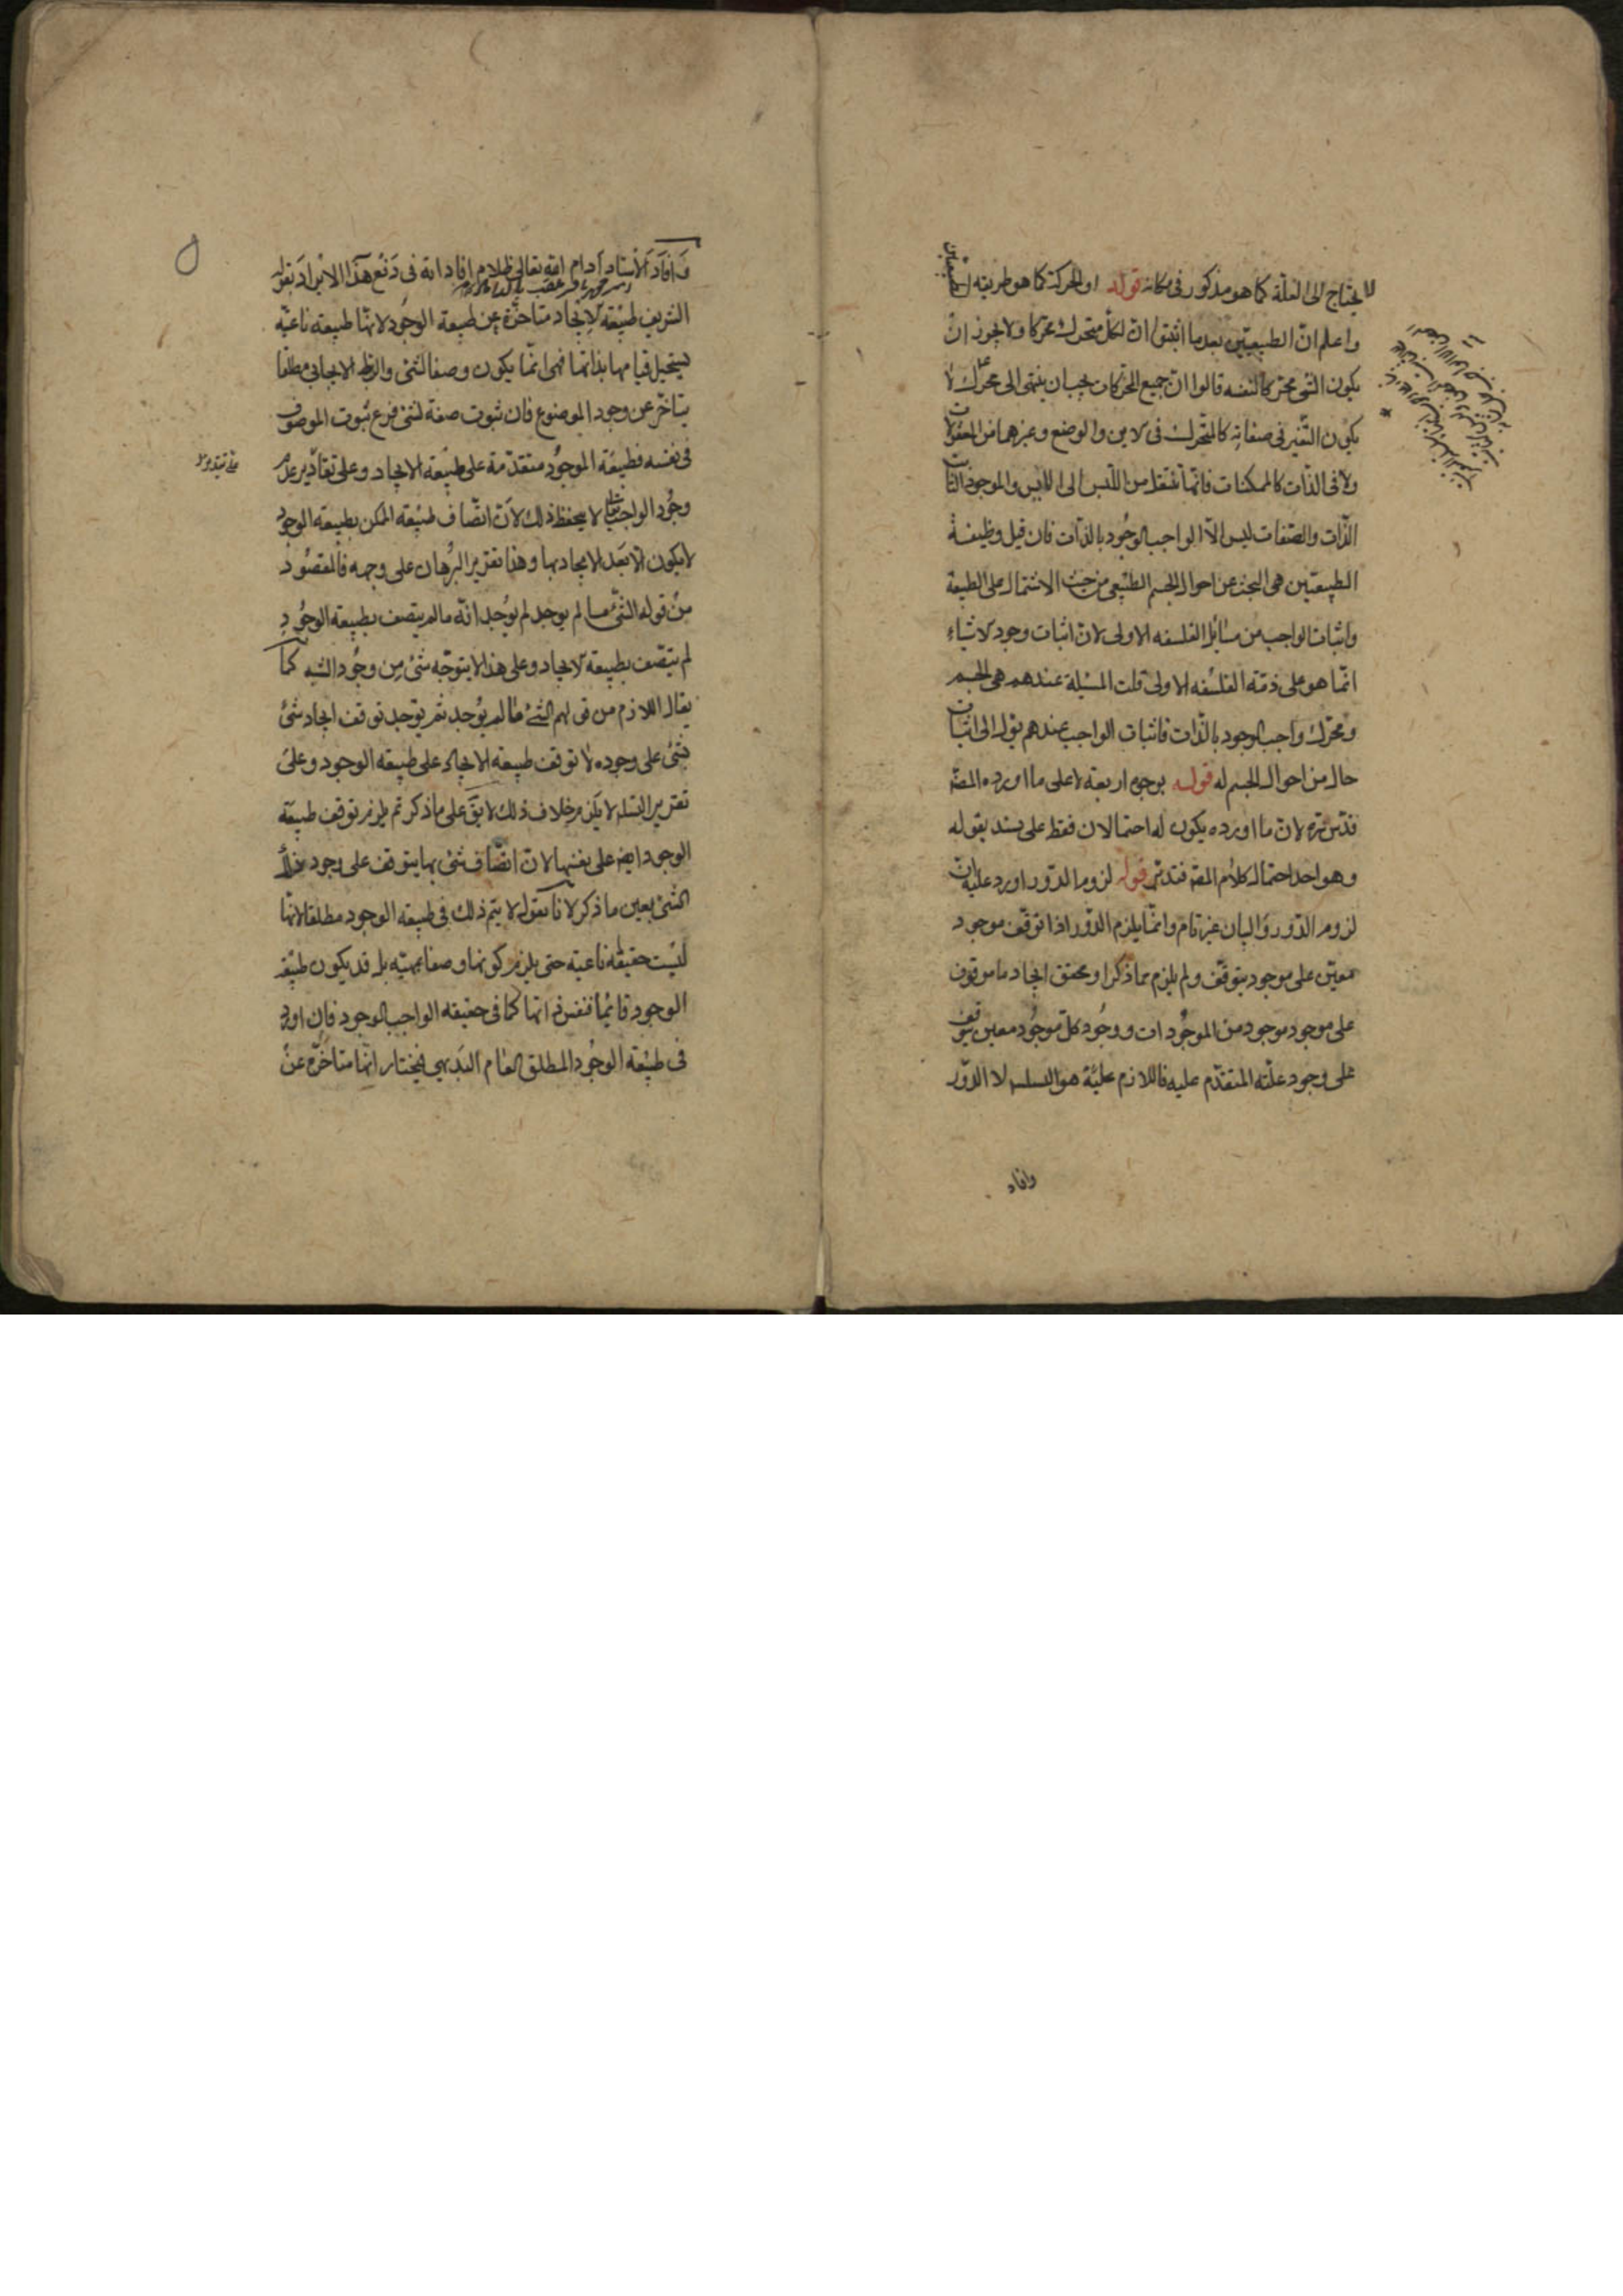 لا يحتاج الى العلة كما هو مذكور فى مكانه قوله او الحركة كما هو طريقه الطبيعيين
واعلم ان الطبيعيين بعد ما اثبتوا ان لكل متحرك محركا ولا يجوز ان
يكون الشئ محركا لنفسه قالوا ان جميع المحركات يجب ان ينتهى الى محرك لا
يكون التغير فى صفاته كالمتحرك فى الاين والوضع وغيرهما من المقولات
ولا فى الذات كالممكنات فانها تنتقل من الليس الى الايس والموجود الثابت
الذات والصفات ليس الا الواجب الوجود بالذات فان قيل وظيفة
الطبيعيين هى البحث عن احوال الجسم الطبيعى من حيث الاشتمال على الطبيعة
واثبات الواجب من مسائل الفلسفه الاولى لان اثبات وجود الاشياء
انما هو على ذمة الفلسفه الاولى قلت المسئلة عندهم هى الجسم
ومحرك واجب الوجود بالذات فاثبات الواجب عندهم يؤل الى اثبات
حال من احوال الجسم له قوله بوجوه اربعة لا على ما اورده المصه
فدبره لان ما اورده يكون له احتمالان فقط على سند بقوله
وهو احد احتمال كلام المصه فتدبر قوله لزوم الدور اورد عليه ان
لزوم الدور والبيان غير تام وانما يلزم الدور اذا توقف موجود
معين على موجود يتوقف ولم يلزم مما ذكر او محقق ايجاد ما موقوف
على موجود موجود من الموجودات ووجود كل موجود معين يتوقف
على وجود علته المتقدم عليه فاللازم عليه هو التسلسل لا الدور
وافاد
وافاد الاستاد ادام الله تعالى ظلام افاداته فى دفع هذا الايراد بقوله
الشريف طبيعة الايجاد متاخرة عن طبيعة الوجود لانها طبيعة ناعتية
يستحيل قيامها بذاتها فهى انما يكون وصفا لشئ والربط الايجابى مطلقا
يتاخر عن وجود الموضوع فان ثبوت صفة لشئ فرع ثبوت الموصوف
فى نفسه فطبيعة الموجود متقدمة على طبيعة الايجاد وعلى تقادير عدم
وجود الواجب لا يحفظ ذلك لان اتصاف طبيعة الممكن بطبيعة الوجود
لا يكون الا بعد الايجاد بها وهذا تقرير البرهان على وجهه فالمقصود
من قوله الشئ ما لم يوجد لم يوجد انه ما لم يتصف بطبيعة الوجود
لم يتصف بطبيعة الايجاد وعلى هذا لا يتوجه شئ من وجود الشبه كما
يقال اللازم من قولهم الشئ ما لم يوجد ثم يوجد توقف ايجاد شئ
بشئ على وجوده لا توقف طبيعة الايجاد على طبيعة الوجود وعلى
تقرير التسلسل لا يلزم خلاف ذلك لا يق على ما ذكر تم يلزم توقف طبيعة
الوجود ايضا على نفسها لان اتصاف شئ بها يتوقف على وجود ذلك
الشئ بعين ما ذكر لانا نقول لا يتم ذلك فى طبيعة الوجود مطلقا لانها
ليست حقيقة ناعتية حتى يلزم كونها وصفا بل قد يكون طبيعة
الوجود قائما بنفس ذاتها كما فى حقيقة الواجب الوجود فان اورد
فى طبيعة الوجود المطلق العام البديهى فيختار انها متاخرة عن